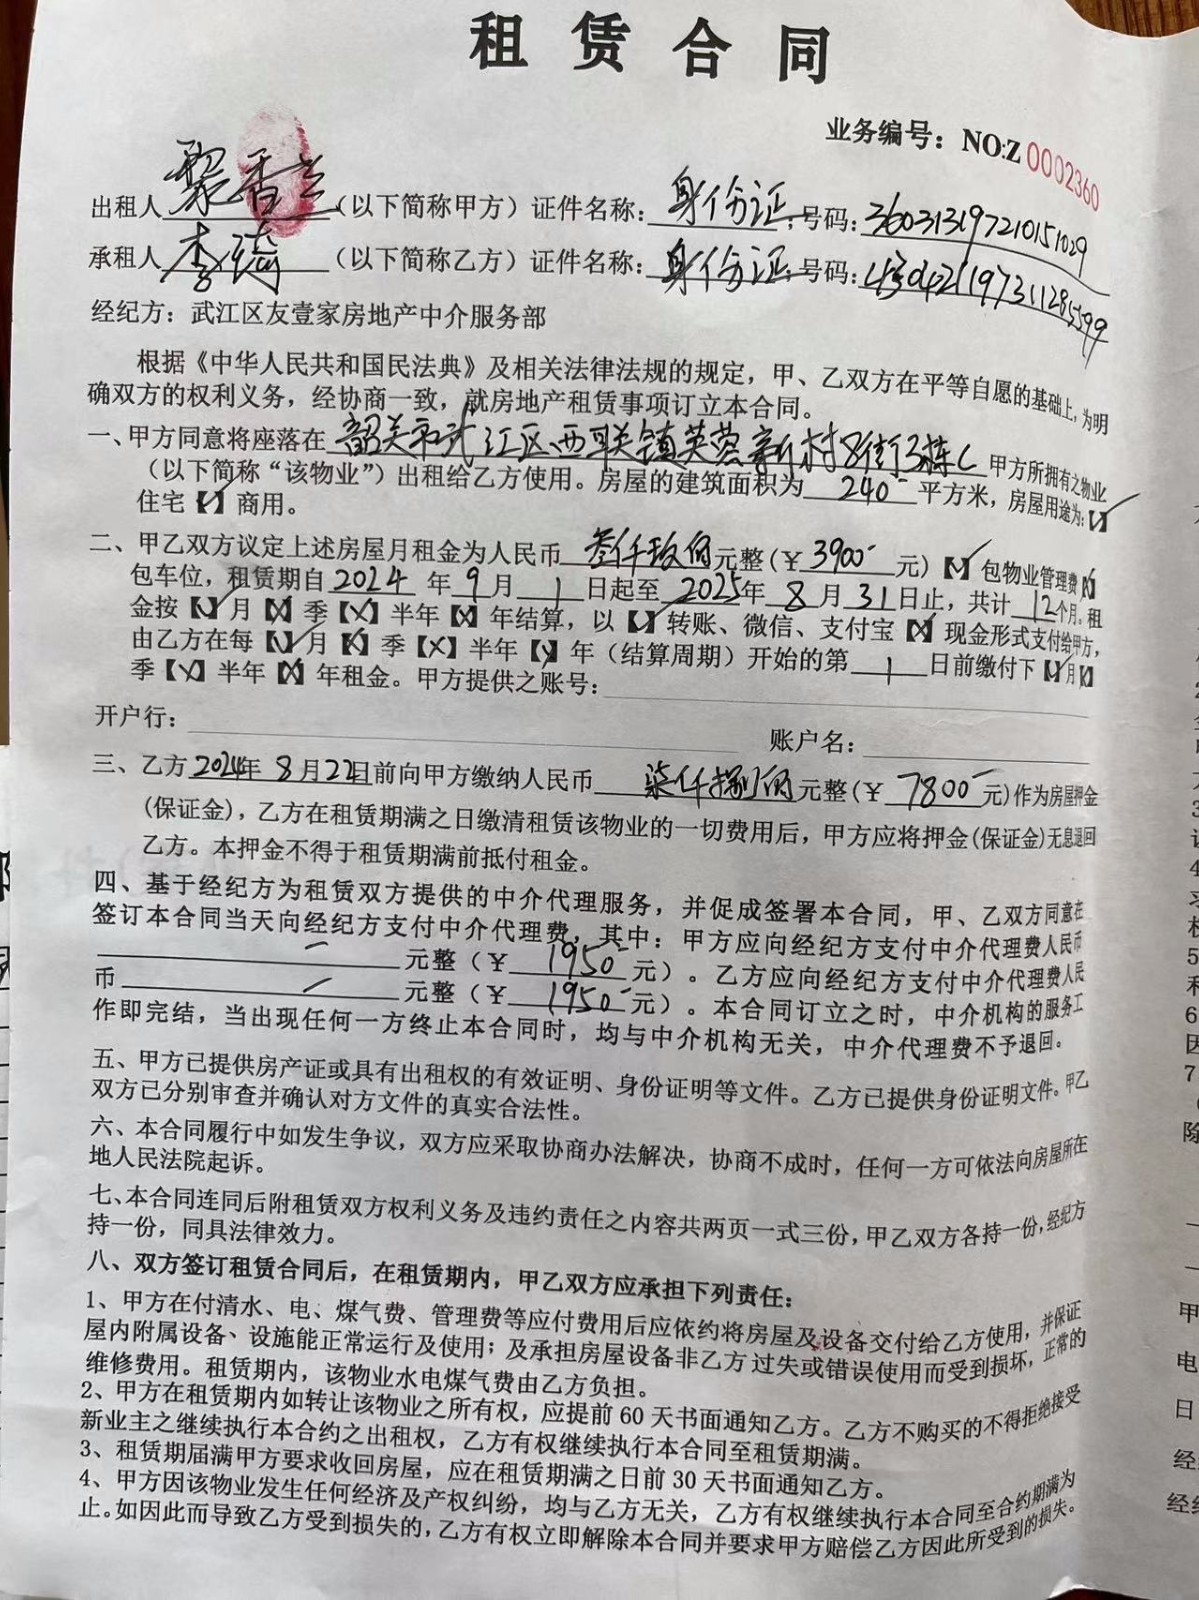 租赁合同
业务编号：NO:Z 0002360
出租人黎香兰（以下简称甲方）证件名称：身份证；号码：360313197210151029
承租人李琦（以下简称乙方）证件名称：身份证；号码：430421197311285599
经纪方：武江区友壹家房地产中介服务部
根据《中华人民共和国民法典》及相关法律法规的规定，甲、乙双方在平等自愿的基础上，为明
确双方的权利义务，经协商一致，就房地产租赁事项订立本合同。
一、甲方同意将座落在 韶关市武江区西联镇芙蓉新村8街3栋C 甲方所拥有之物业
（以下简称“该物业”）出租给乙方使用。房屋的建筑面积为 240 平方米，房屋用途为：【✓】
住宅【✓】商用。
二、甲乙双方议定上述房屋月租金为人民币 叁仟玖佰元整（¥ 3900 元）【✓】包物业管理费【✓】
包车位，租赁期自2024 年 9 月 1 日起至 2025年 8 月 31 日止，共计 12 个月。租
金按【✓】月【×】季【×】半年【×】年结算，以【✓】转账、微信、支付宝【×】现金形式支付给甲方，
由乙方在每【✓】月【×】季【×】半年【×】年（结算周期）开始的第 1 日前缴付下【✓】月【×】
季【×】半年【×】年租金。甲方提供之账号：
开户行： 账户名：
三、乙方2024年 8 月 22日前向甲方缴纳人民币 柒仟捌佰元整（¥ 7800 元）作为房屋押金
(保证金)，乙方在租赁期满之日缴清租赁该物业的一切费用后，甲方应将押金(保证金)无息退回
乙方。本押金不得于租赁期满前抵付租金。
四、基于经纪方为租赁双方提供的中介代理服务，并促成签署本合同，甲、乙双方同意在
签订本合同当天向经纪方支付中介代理费，其中：甲方应向经纪方支付中介代理费人民币
元整（¥ 1950 元）。乙方应向经纪方支付中介代理费人民
币 元整（¥ 1950 元）。本合同订立之时，中介机构的服务工
作即完结，当出现任何一方终止本合同时，均与中介机构无关，中介代理费不予退回。
五、甲方已提供房产证或具有出租权的有效证明、身份证明等文件。乙方已提供身份证明文件。甲乙
双方已分别审查并确认对方文件的真实合法性。
六、本合同履行中如发生争议，双方应采取协商办法解决，协商不成时，任何一方可依法向房屋所在
地人民法院起诉。
七、本合同连同后附租赁双方权利义务及违约责任之内容共两页一式三份，甲乙双方各持一份，经纪方
持一份，同具法律效力。
八、双方签订租赁合同后，在租赁期内，甲乙双方应承担下列责任：
1、甲方在付清水、电、煤气费、管理费等应付费用后应依约将房屋及设备交付给乙方使用，并保证
屋内附属设备、设施能正常运行及使用；及承担房屋设备非乙方过失或错误使用而受到损坏，正常的
维修费用。租赁期内，该物业水电煤气费由乙方负担。
2、甲方在租赁期内如转让该物业之所有权，应提前 60 天书面通知乙方。乙方不购买的不得拒绝接受
新业主之继续执行本合约之出租权，乙方有权继续执行本合同至租赁期满。
3、租赁期届满甲方要求收回房屋，应在租赁期满之日前 30 天书面通知乙方。
4、甲方因该物业发生任何经济及产权纠纷，均与乙方无关，乙方有权继续执行本合同至合约期满为
止。如因此而导致乙方受到损失的，乙方有权立即解除本合同并要求甲方赔偿乙方因此所受到的损失。